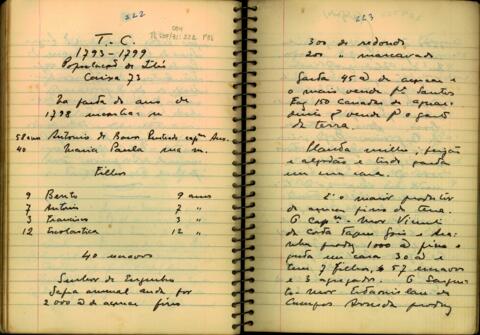 222
004
223
T. C.
1793-1799
População de Itú
Caixa 73
1798
58 annos Antonio de Barros Penteado capm
40 Maria Paula sua m.
Filhos
9 Bento 9 annos
7 Antonio 7 "
3 Francisco 3 "
12 Escolastica 12 "
40 escravos
Senhor de Engenho
Safra annual anda por
2000 @ de açucar fino
300 de redondo
200 " mascavado
Gasta 45 @ de açucar e
o mais vende pa Santos
Faz 150 canadas de aguar-
dente q vende pa o gasto
da terra.
Planta milho, feijão
e algodão e tudo gasta
em sua casa.
É o maior produtor
de açucar fino da terra.
O Capm-mor Vicente
da Costa Taques Goes e Ara-
nha produz 1000 @ fino e
gasta em casa 30 @ e
tem 7 filhos, 57 escravos
e 3 agregados. O Sargen-
to-mor
Campos Arruda produz